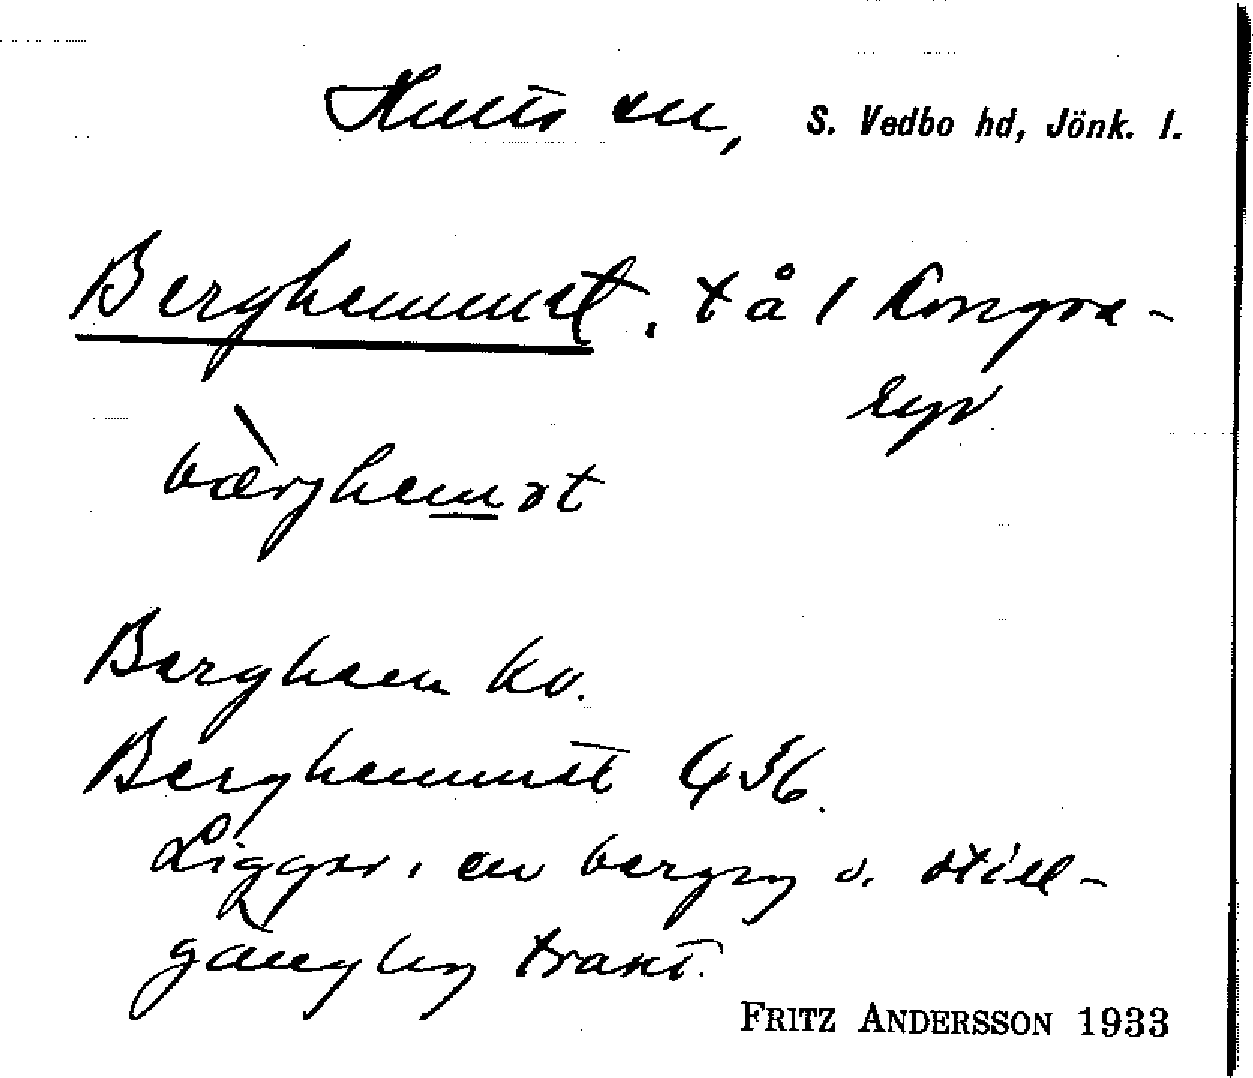 Hults sn, S. Vedbo hd, Jönk. l.
Berghemmet, t å 1 Kongse-
ryd
bærghemət
Berghem kv.
Berghemmet G 36.
Ligger i en bergig o. otill-
gänglig trakt.
FRITZ ANDERSSON 1933